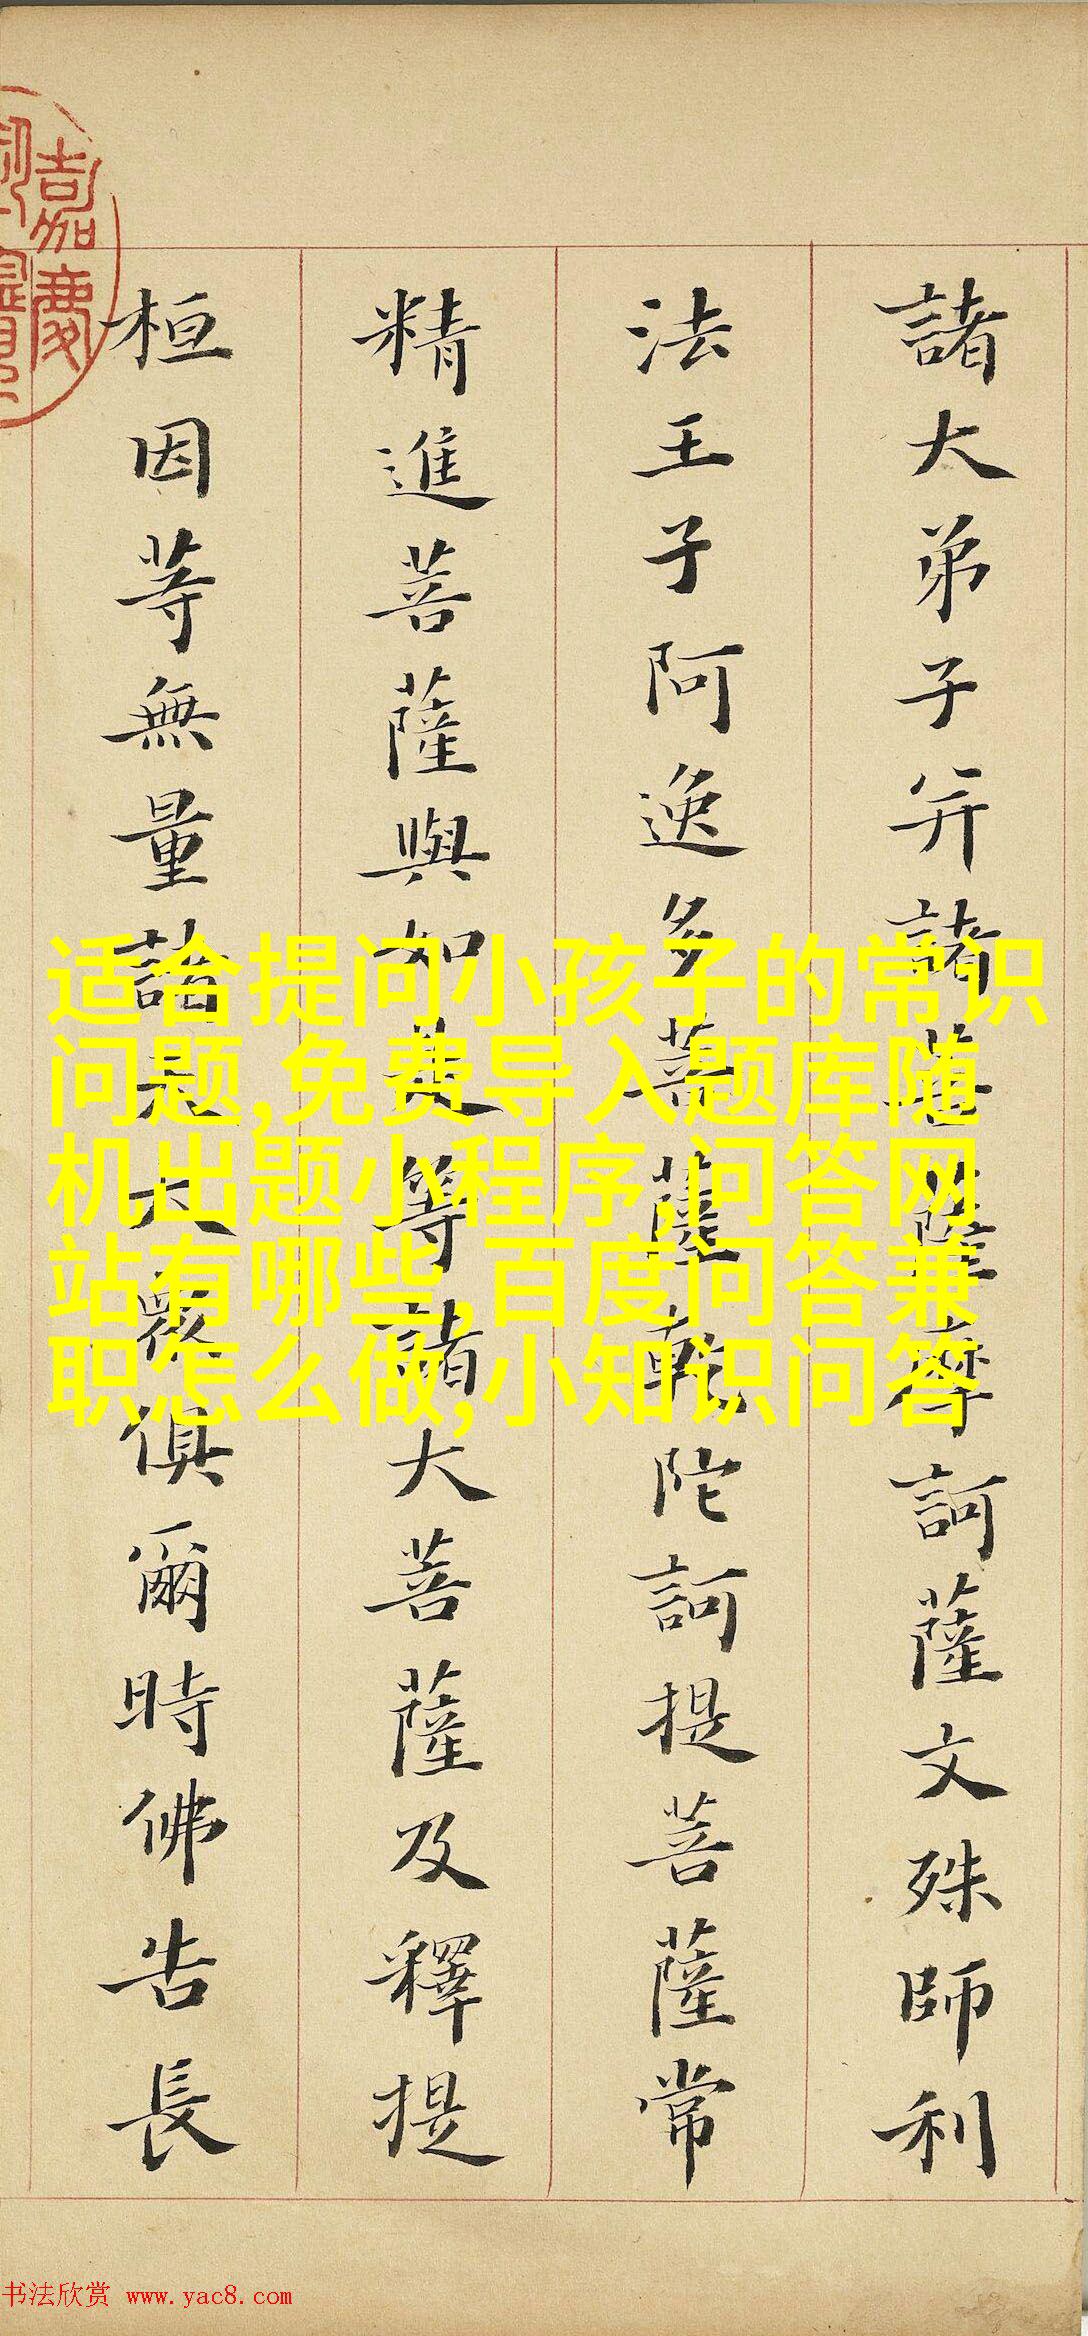 諸大弟子并諸菩薩摩訶薩文殊師利
法王子阿逸多菩薩乾陀訶提菩薩常
精進菩薩與如是等諸大菩薩及釋提
桓因等無量諸天大眾俱爾時佛告長
适合提问小孩子的常识
问题,免费导入题库随
机出题小程序,问答网
站有哪些,百度问答兼
职怎么做,小知识问答
嘉慶
书法欣赏 www.yac8.com